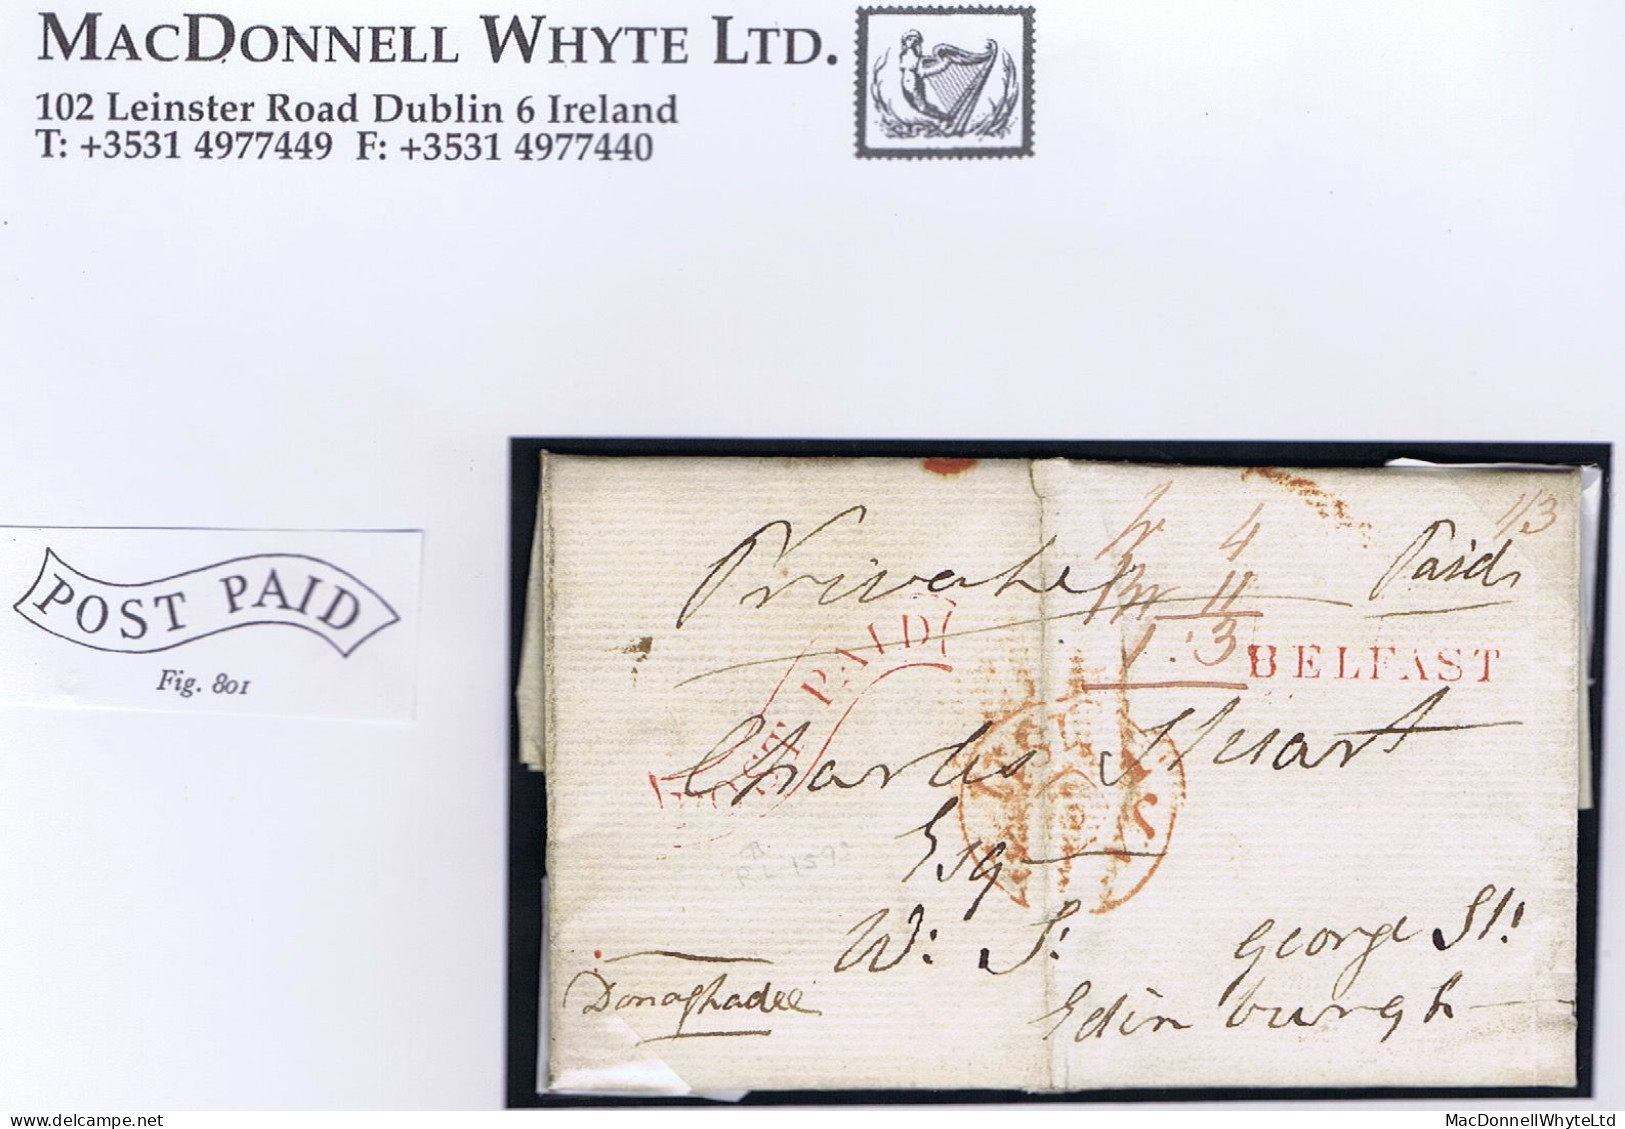 MACDONNELL WHYTE LTD.
102 Leinster Road Dublin 6 Ireland
T: +3531 4977449 F: +3531 4977440
POST PAID
Fig. 801
1/3
Private
4
Paid
11
1:3
BELFAST
POST PAID
Charles Stuart
Esq
W: S: George St:
Donaghadee
Edinburgh
MacDonnellWhyteLtd
MacDonnellWhyteLtd